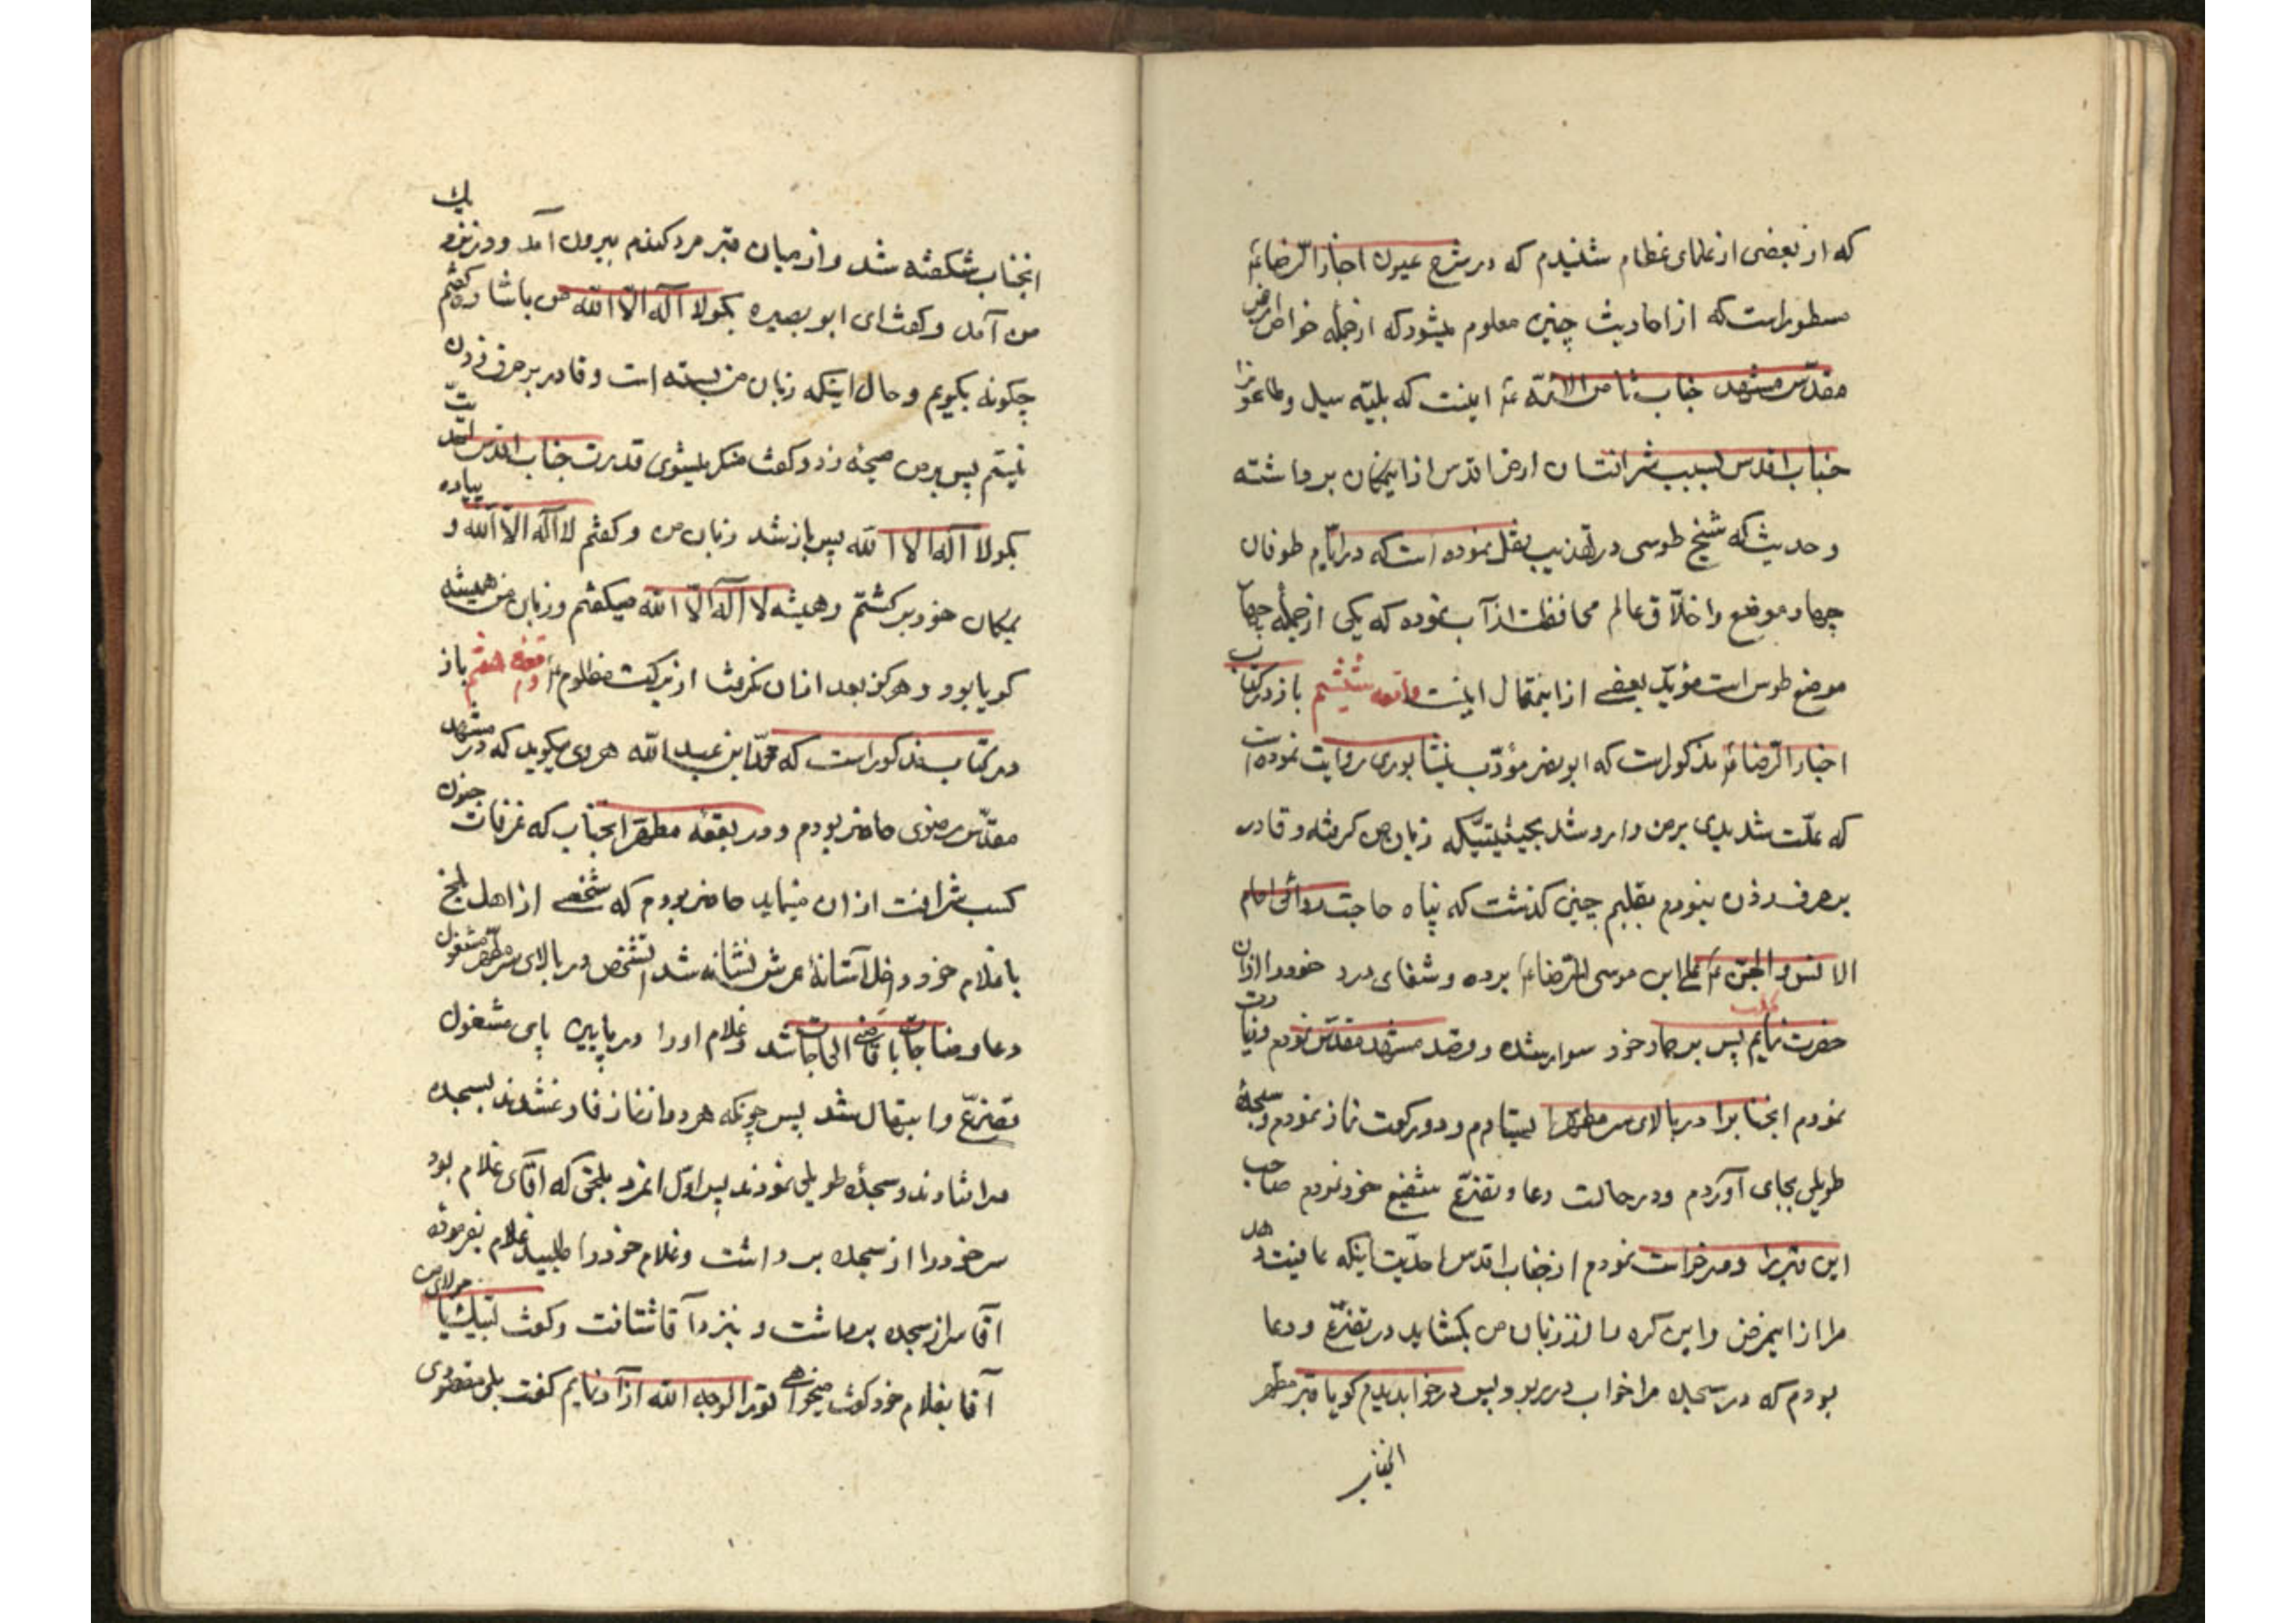 که از بعضی از علمای عظام شنیدم که در شرح عیون اخبار الرضا ع
مسطور است که از احادیث چنین معلوم میشود که از جمله خواص ارض
مقدّس مشهد جناب ثامن الائمّه ع اینست که بلیّه سیل و طاعون را
جناب اقدس بسبب شرافت ان ارض اقدس از ایمکان برداشته
و حدیث که شیخ طوسی در تهذیب نقل نموده است که در ایّام طوفان
چهار موضع را خلّاق عالم محافظت از آب نموده که یکی از جمله چهار
موضع طوس است مؤیّد بعضی از اینمقال اینست واقعه ششم باز در کتاب
اخبار الرّضا ع مذکور است که ابو نصر مؤدّب نیشابوری روایت نموده است
که علّت شدیدی بر من وارد شد بحیثیتیکه زبان من گرفته و قادر
بر حرف زدن نبودم بقلبم چنین کذشت که پناه حاجت روائی امام
الانس و الجنّ ع علی ابن موسی الرّضا ع برده و شفای درد خود را از ان
حضرت نمایم پس بر حمار خود سوار شده و قصد مشهد مقدّس نمودم و زیارت
نمودم انجناب را در بالای سر مطهّر ایستادم و دو رکعت نماز نمودم و سجدهٔ
طویلی بجای آوردم و در حالت دعا و تضرّع شفیع خود نمودم صاحب
این قبر را و درخواست نمودم از جناب اقدس احدّیت اینکه عافیت دهد
مرا از ایمرض و این کره را از زبان من بکشاید در تضرّع و دعا
بودم که در سجده مرا خواب در ربود پس در خواب دیدم کویا قبر مطهر
انجناب
انجناب شکفته شد و از میان قبر مرد کندم بیرون آمد و در نزد یک
من آمد و کفت ای ابو بصیره بکو لا اله الّا الله من باشاره کفتم
چکونه بکویم و حال اینکه زبان من بسته است و قادر بر حرف زدن
نیستم پس بر من صیحه زد و کفت منکر میشوی قدرت جناب اقدس احدیّت
بکو لا اله الا الله پس باز شد زبان من و کفتم لا اله الّا الله و پیاده
بمکان خود برکشتم و همیشه لا اله الّا الله میکفتم و زبان من همیشه
کویا بود و هرکز بعد از ان نکرفت از برکت مظلوم ع واقعه هفتم باز
در کتاب مذکور است که محمّد ابن عبد الله هروی میکوید که در مشهد
مقدّس رضوی حاضر بودم و در بقعه مطهّر انجناب که عرفات چون
کسب شرافت از ان مینماید حاضر بودم که شخصی از اهل بلخ
با غلام خود داخل آستانهٔ عرش نشانه شد انشخص در بالای سر مطهّر مشغول
دعا و مناجات با قاضی الحاجات شد و غلام او را در پایین پای مشغول
تضرّع و ابتهال شد پس چونکه هر دو از نماز فارغ شدند بسجده
در افتادند و سجدهٔ طویلی نمودند پس اوّل انمرد بلخی که اقای غلام بود
سر خود را از سجده برداشت و غلام خود را طلبید غلام بفرموده
آقا سر از سجده برداشت و بنزد آقا شتافت و کفت لبّیک یا مولای من
آقا بغلام خود کفت میخواهی تو را لوجه الله آزاد نمایم کفت بلی مقصودی